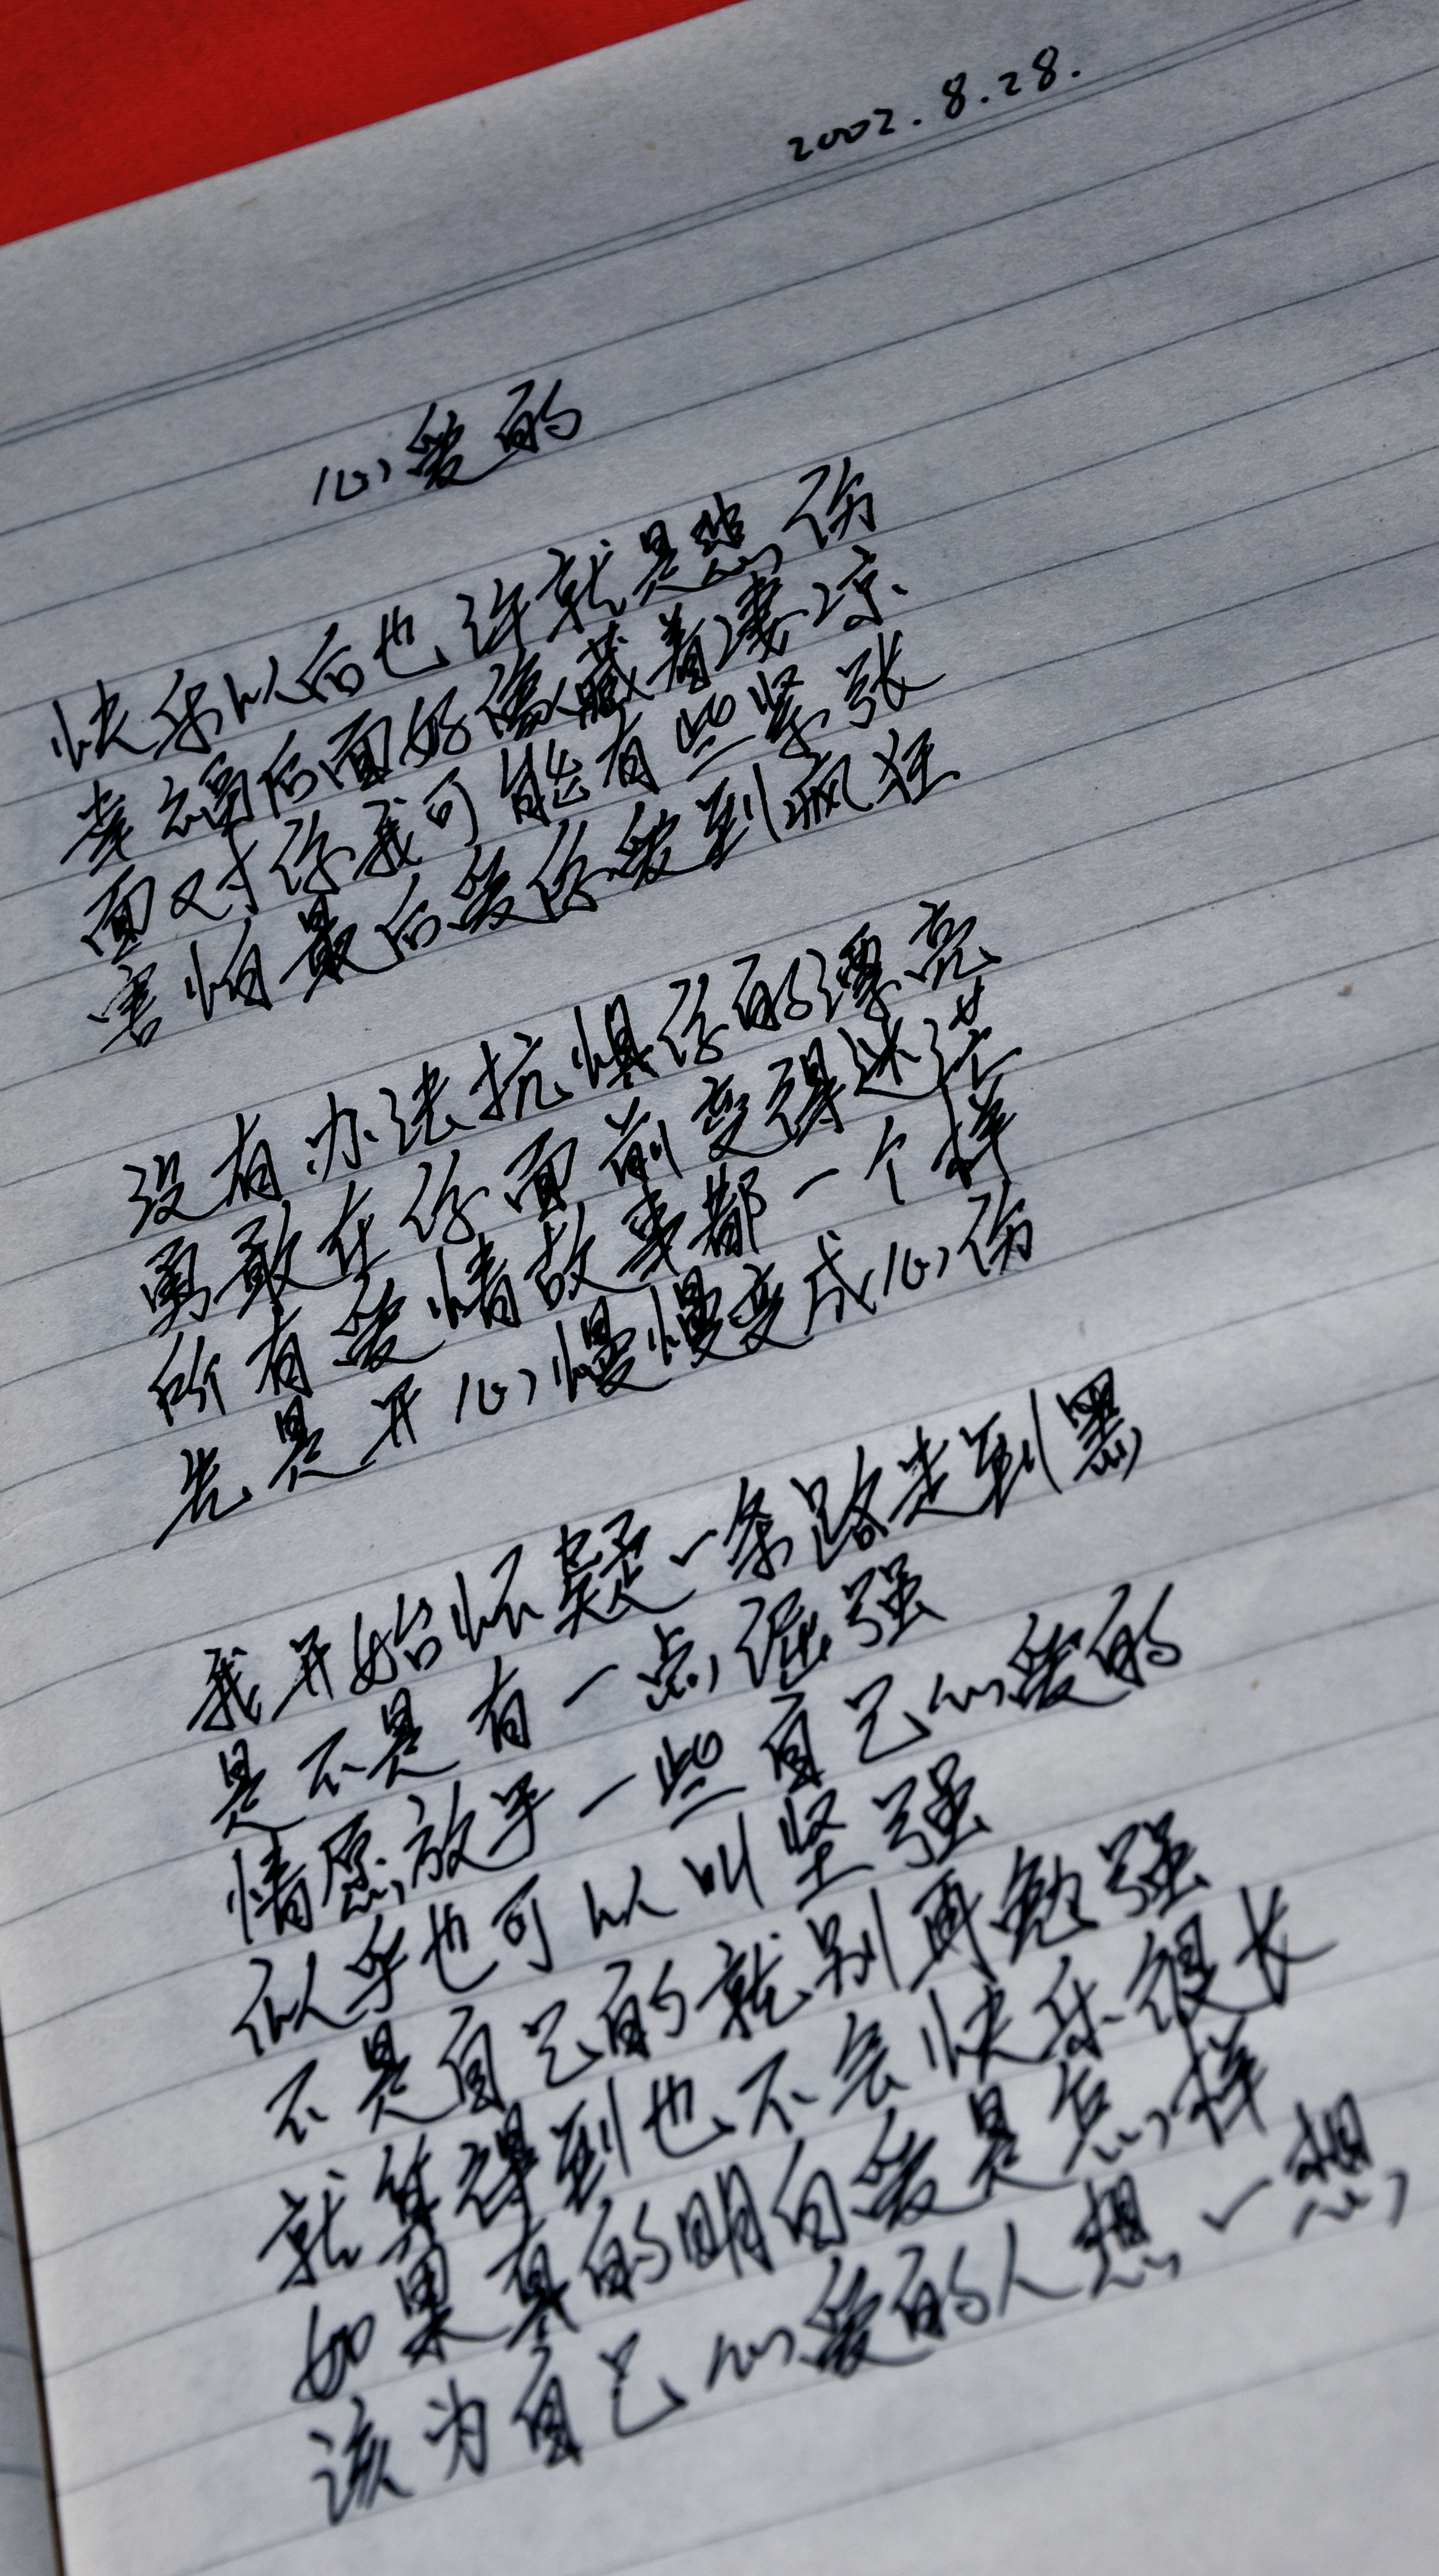 2002.8.28.
心爱的
快乐以后也许就是悲伤
幸福后面好像藏着凄凉
面对你我可能有些紧张
害怕最后爱你爱到疯狂
没有办法抗惧你的漂亮
勇敢在你面前变得迷茫
所有爱情故事都一个样
先是开心慢慢变成心伤
我开始怀疑一条路走到黑
是不是有一点倔强
情愿放手一些自己心爱的
似乎也可以叫坚强
不是自己的就别再勉强
就算得到也不会快乐很长
如果真的明白爱是怎样
该为自己心爱的人想一想